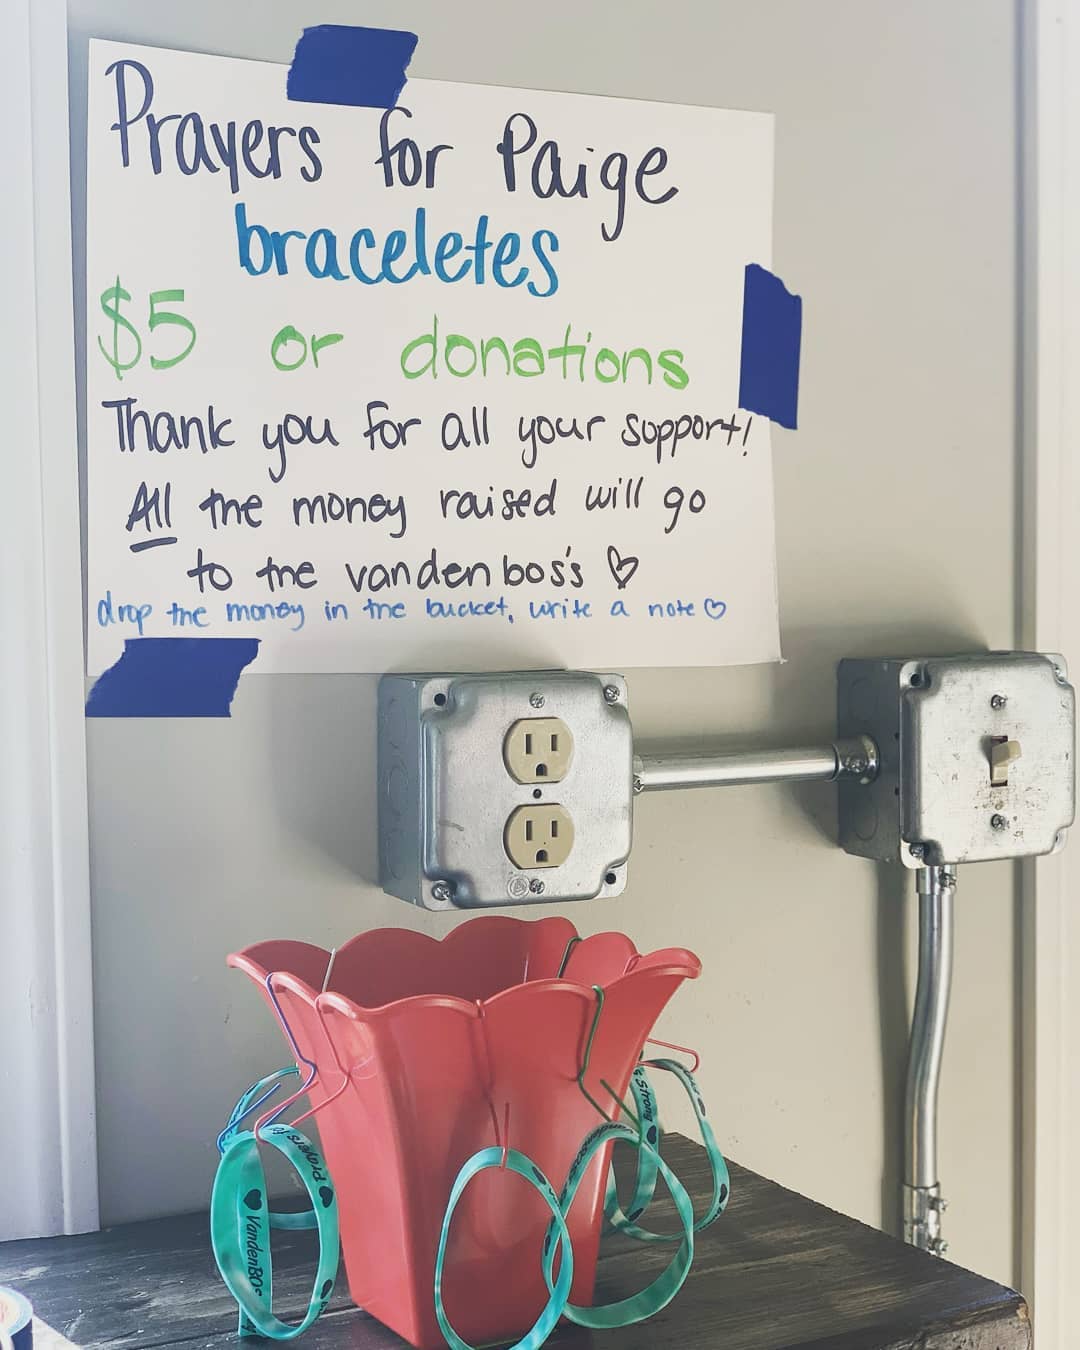 Prayers for Paige
braceletes
$5 or donations
Thank you for all your support!
All the money raised will go
to the vanden bos's ♡
drop the money in the bucket, write a note ♡
Prayers fo
♥ VandenBOs
Strong ♥